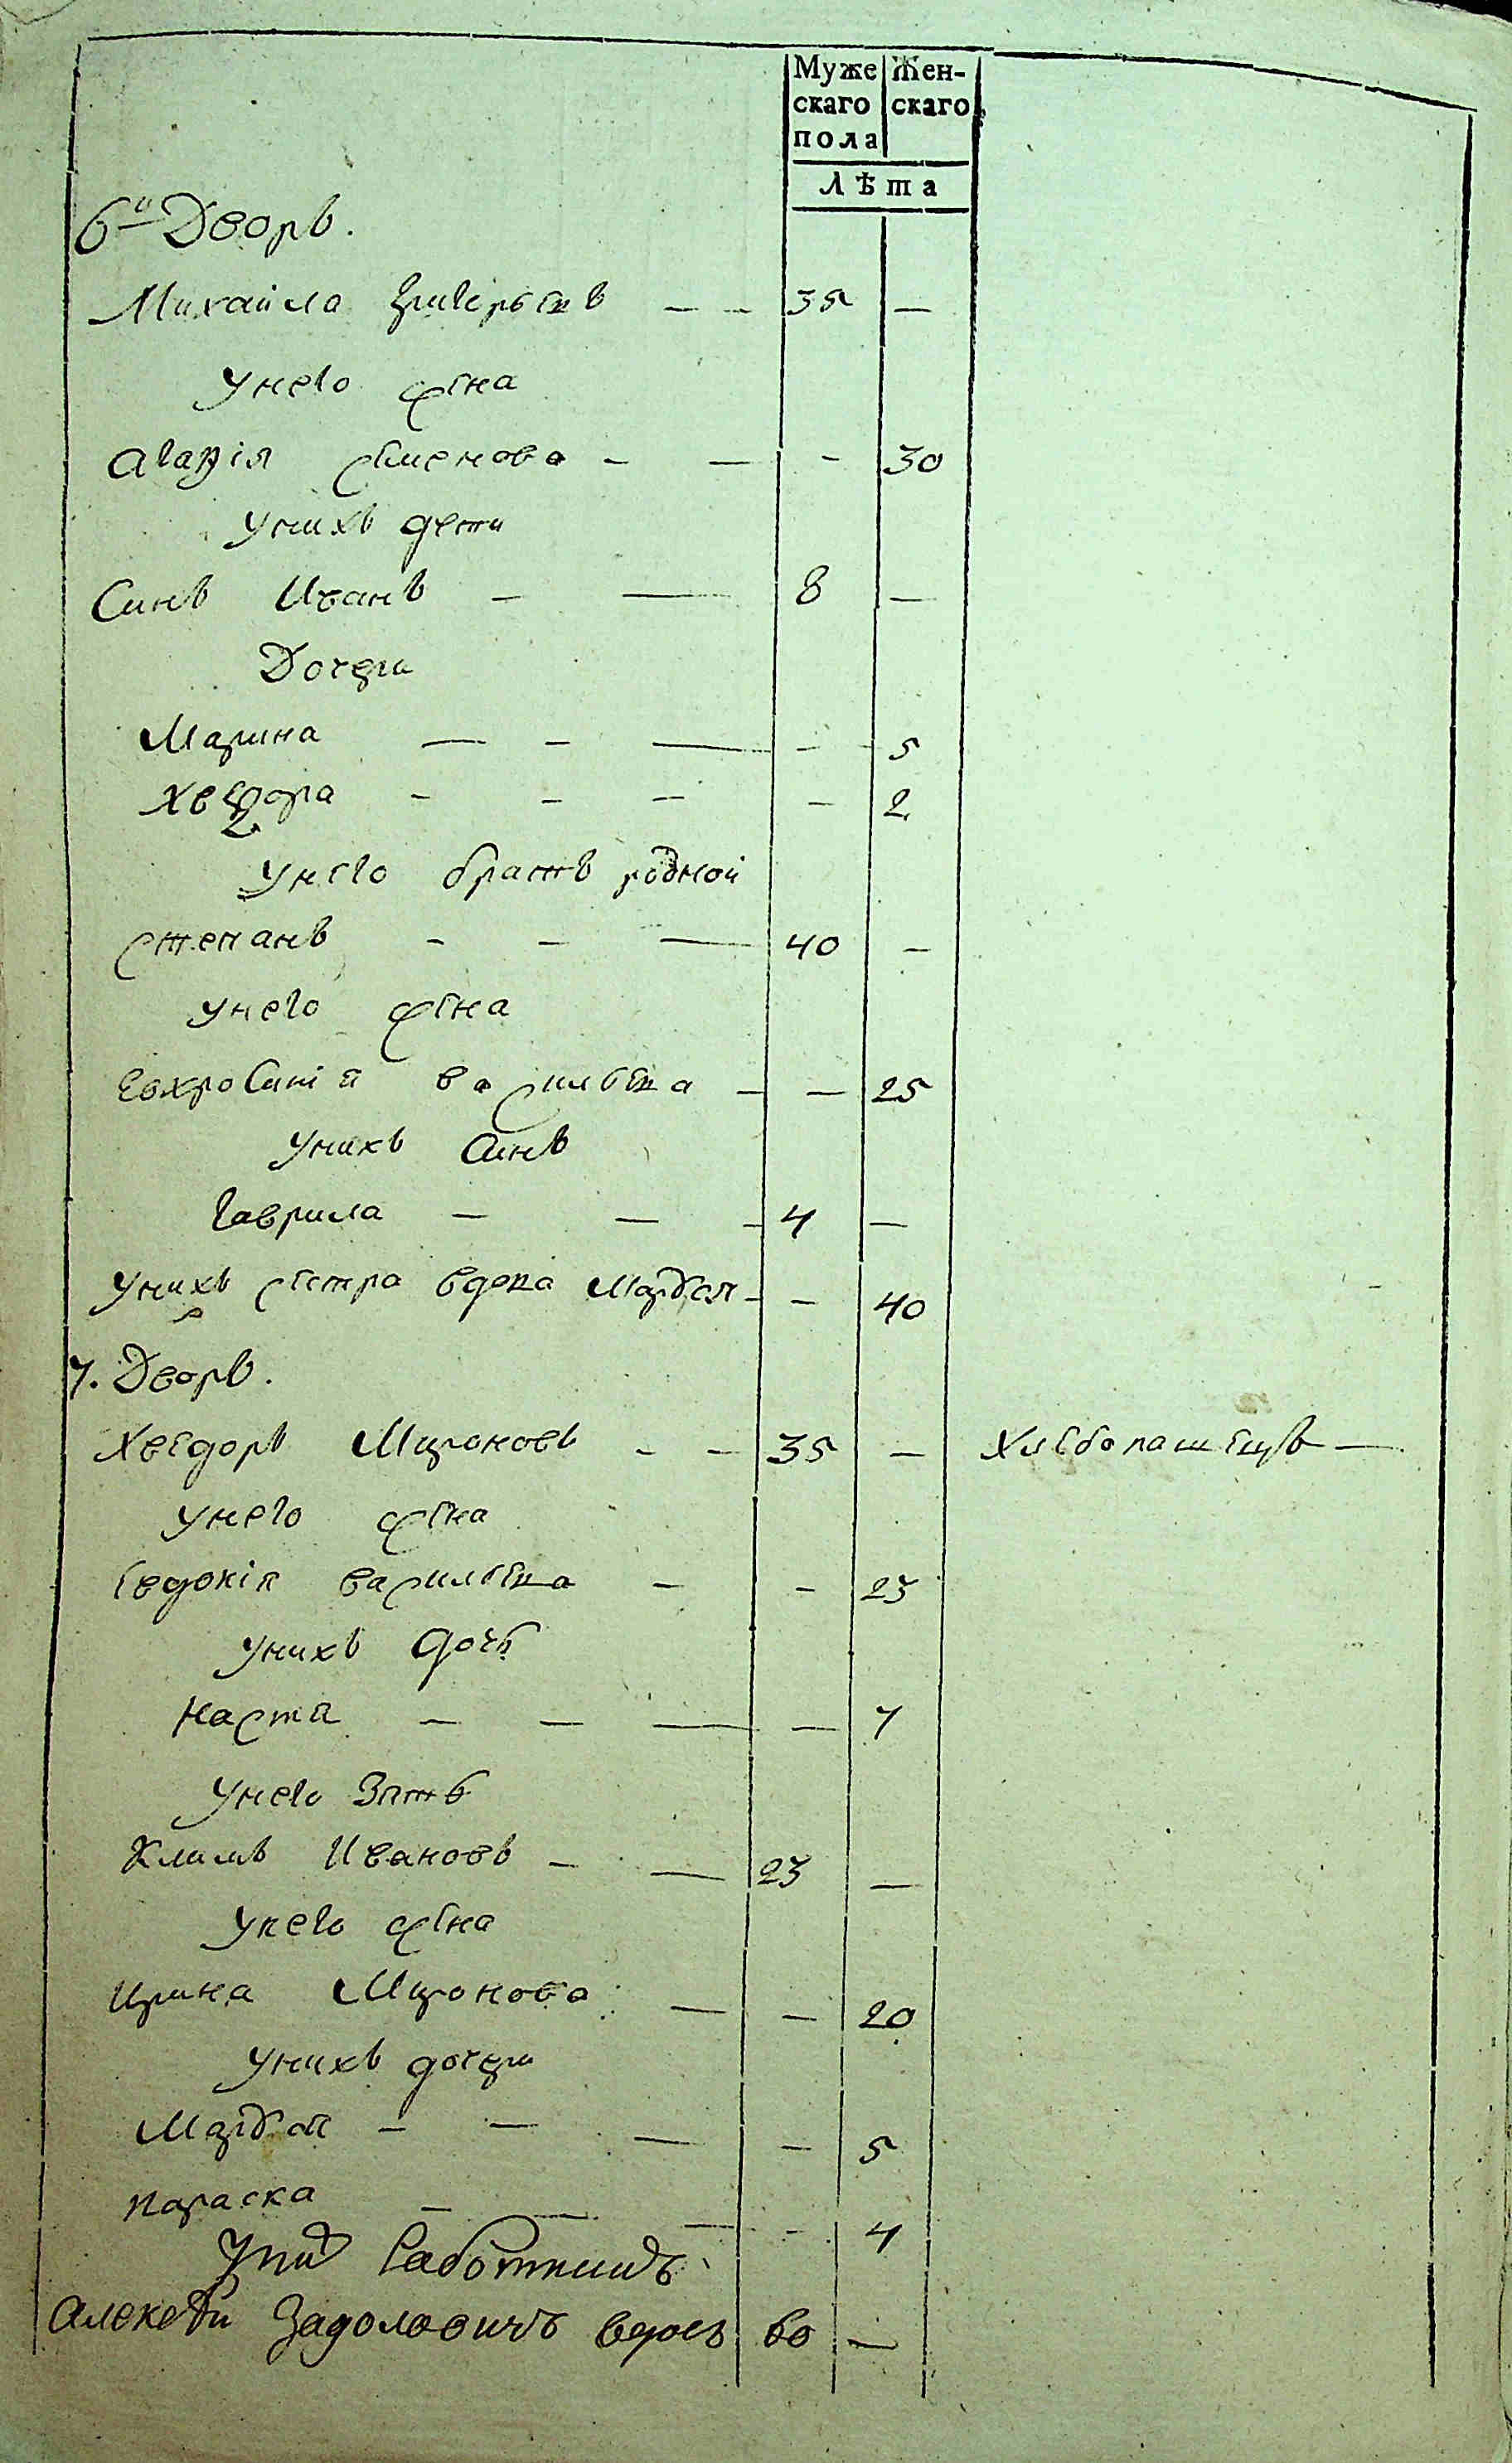 Муже Жен-
скаго скаго
пола
Лѣта
6й Дворъ.
Михайла Григорьевъ — — 35 —
у него жена
Агафія Семенова — — — 30
у нихъ дети
Синъ Иванъ — — 8 —
Дочери
Марина — — — — 5
Хведора — — — — 2
у него братъ родной
Степанъ — — — 40 —
у него жена
Евхросинія Васильева — — 25
у нихъ синъ
Гаврила — — — 4 —
у нихъ сестра вдова Марфа — — 40
7. Дворъ.
Хведоръ Мироновъ — — 35 — Хлебопашецъ —
у него жена
Евдокія Васильева — — 23
у нихъ дочь
Настя — — — — 7
у него Зять
Климъ Ивановъ — — 23 —
у него жена
Ирина Миронова — — 20
у нихъ дочери
— — — — 5
Параска — — — — 4
у нихъ работникъ
Алексей вдовъ 60 —